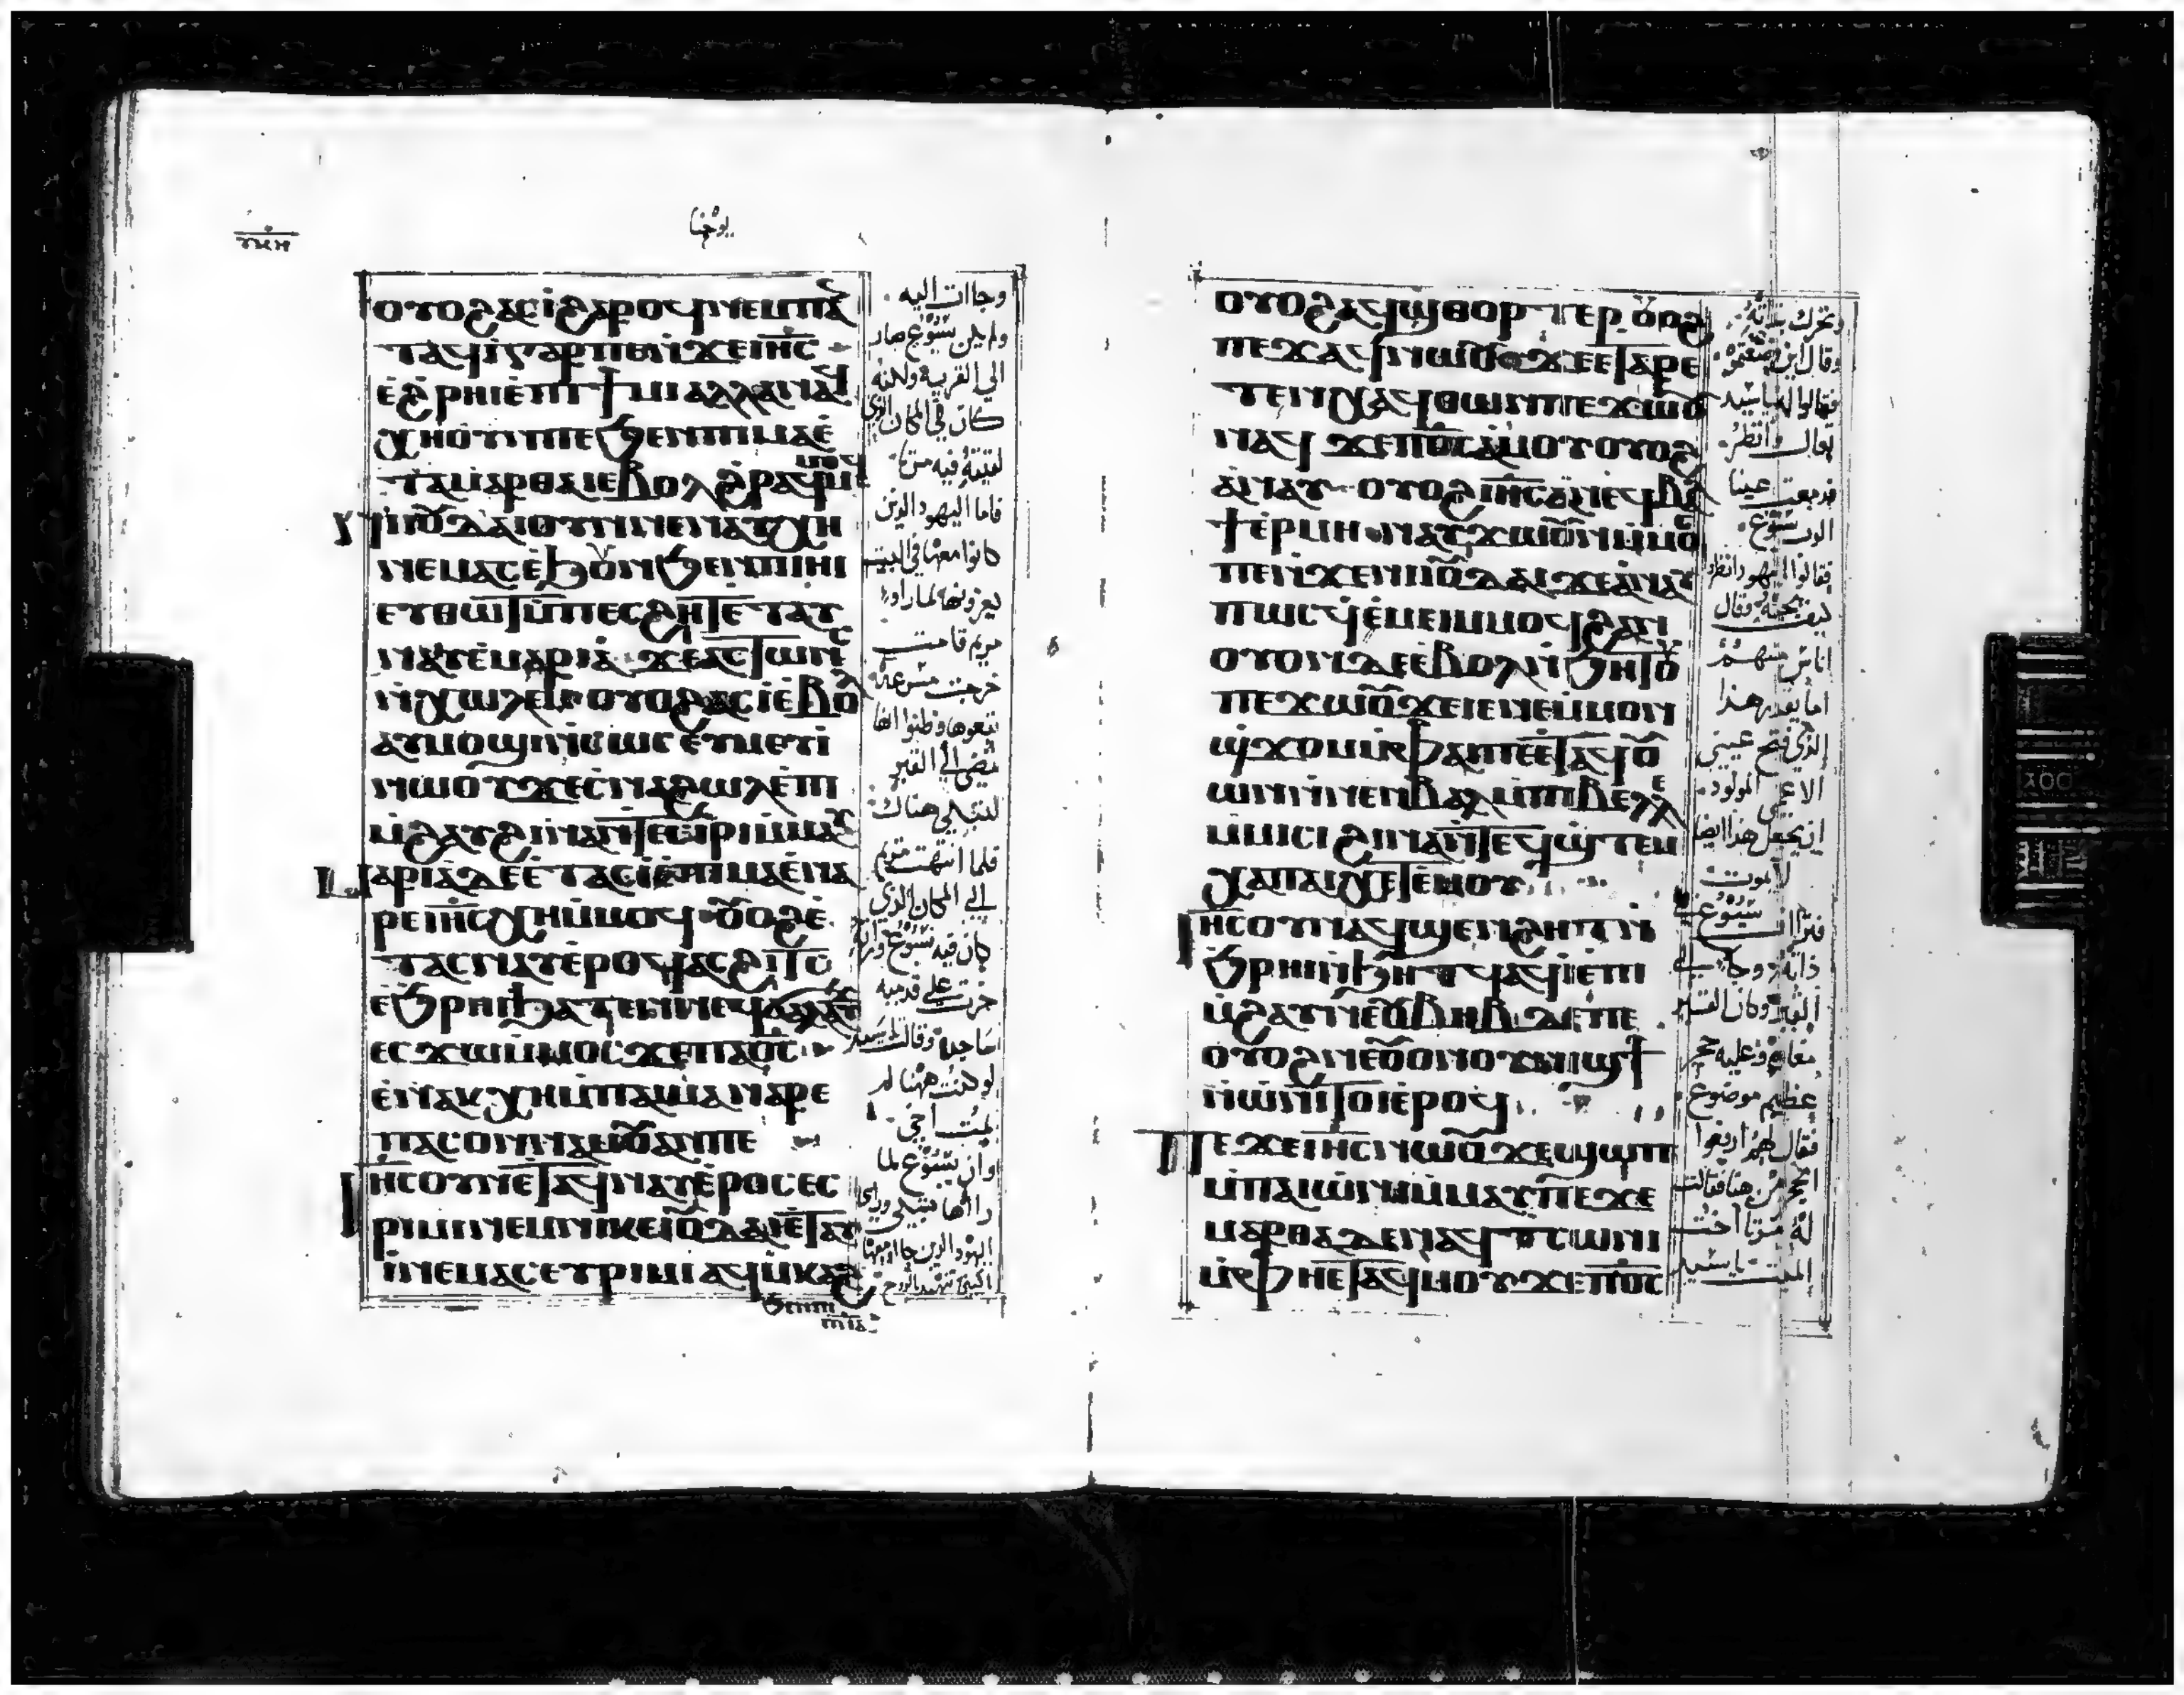 يوحنا
ⲟⲩⲟϩⲁⲥⲓ̀ϩⲁⲣⲟϥⲛⲉⲙⲡⲁ
ⲧⲁϥⲓ̀ⲅⲁⲣⲡⲉϫⲉⲓⲏ̅ⲥ̅
ⲉ̀ϩⲣⲏⲓⲉ̀ⲡⲓϯⲙⲓⲁⲗⲗⲁⲛⲁϥ
ⲭⲏⲟⲩⲛⲡⲉϧⲉⲛⲡⲓⲙⲁⲉ̀
ⲧⲁⲙⲁⲣⲑⲁⲓⲉⲃⲟⲗⲉ̀ϩⲣⲁϥⲙ̀ⲙⲟϥ
ⲛⲓⲓⲟⲩⲇⲁⲓⲟⲩⲛⲉⲛⲁⲩⲭⲏ
ⲛⲉⲙⲁⲥⲉ̀ϧⲟⲩⲛϧⲉⲛⲡⲓⲏⲓ
ⲉⲩⲑⲱϯⲙ̀ⲡⲉⲥϩⲏⲧⲉ̀ⲧⲁⲩ
ⲛⲁⲩⲉ̀ⲙⲁⲣⲓⲁ̀ϫⲉⲁⲥⲧⲱⲛⲥ
ⲛ̀ⲭⲱⲗⲉⲙⲟⲩⲟϩⲁⲥⲓ̀ⲉ̀ⲃⲟⲗ
ⲁⲩⲙⲟϣⲓⲛ̀ⲥⲱⲥⲉⲩⲙⲉⲩⲓ̀
ⲛⲱⲟⲩϫⲉⲥⲛⲁϩⲱⲗⲉ̀ⲡⲓ
ⲙ̀ϩⲁⲩϩⲓⲛⲁⲛ̀ⲧⲉⲥⲣⲓⲙⲓⲙ̀ⲙⲁⲩ
ⲙⲁⲣⲓⲁ̀ⲇⲉⲉ̀ⲧⲁⲥⲓ̀ⲉ̀ⲡⲓⲙⲁⲉ̀ⲛⲁ
ⲣⲉⲓⲏ̅ⲥ̅ⲭⲏⲙ̀ⲙⲟϥⲟⲩⲟϩⲉ̀
ⲧⲁⲥⲛⲁⲩⲉ̀ⲣⲟϥⲁⲥϩⲓⲧⲥ
ⲉϧⲣⲏⲓϧⲁⲧⲉⲛⲛⲉϥϭⲁⲗⲁⲩϫ
ⲉⲥϫⲱⲙ̀ⲙⲟⲥϫⲉⲡⲁϭⲟⲓⲥ
ⲉ̀ⲛⲁⲕⲭⲏⲙ̀ⲡⲁⲓⲙⲁⲛⲁⲣⲉ
ⲡⲁⲥⲟⲛⲛⲁⲙⲟⲩⲁⲛⲡⲉ
ⲓⲏⲥⲟⲩⲛⲉ̀ⲧⲁϥⲛⲁⲩⲉ̀ⲣⲟⲥⲉⲥ
ⲣⲓⲙⲓⲛⲉⲙⲛⲓⲕⲉⲓⲟⲩⲇⲁⲓⲉ̀ⲧⲁⲩ
ⲓ̀ⲛⲉⲙⲁⲥⲉⲩⲣⲓⲙⲓⲁϥⲙ̀ⲕⲁϩ
ϧⲉⲛⲡⲓ
ⲡ̅ⲛ̅ⲁ̅
وجاات اليه
ولم يكن يسوع صار
الي القرية ولكنه
كان في المكان الذي
لقيته فيه مرتا
فاما اليهود الذين
كانوا معها في البيت
يعزونها لما راوا
مريم قامت
خرجت مسرعة
تبعوها وظنوا انها
تمضي الي القبر
لتبكي هناك
فلما انتهت مريم
الي المكان الذي
كان فيه يسوع وراته
خرت علي قدميه
ساجده وقالت يا سيد
لو كنت ههنا لم
يمت اخي
وان يسوع لما
راها تبكي وراي
اليهود الذين جاوا معها
ⲟⲩⲟϩⲁϥϣⲑⲟⲣⲧⲉⲣⲟⲩⲟϩ
ⲡⲉϫⲁϥⲛⲱⲟⲩϫⲉⲉ̀ⲧⲁⲣⲉ
ⲧⲉⲛⲭⲁϥⲑⲱⲛⲡⲉϫⲱⲟⲩ
ⲛⲁϥϫⲉⲡⲟ̅ⲥ̅ⲁ̀ⲙⲟⲩⲟⲩⲟϩ
ⲁ̀ⲛⲁⲩⲟⲩⲟϩⲓⲏ̅ⲥ̅ⲁ̀ⲛⲉϥⲃⲁⲗ
ϯⲉ̀ⲣⲙⲏⲛⲁⲩϫⲱⲟⲩⲛⲙ̀ⲙⲟⲥ
ⲡⲉⲛϫⲉⲛⲓⲓⲟⲩⲇⲁⲓϫⲉⲁ̀ⲛⲁⲩ
ⲡⲱⲥϥⲉ̀ⲙⲉⲓⲙ̀ⲙⲟϥϩⲁⲛ
ⲟⲩⲟⲛⲇⲉⲉ̀ⲃⲟⲗⲛ̀ϧⲏⲧⲟⲩ
ⲡⲉϫⲱⲟⲩϫⲉⲓⲉⲛⲉⲙ̀ⲙⲟⲛ
ϣϫⲟⲙⲙ̀ⲫⲁⲓⲡⲉⲉ̀ⲧⲁϥⲟⲩ
ⲱⲛⲛ̀ⲛⲉⲛⲃⲁⲗⲙ̀ⲡⲓⲃⲉⲗⲗⲉ
ⲙ̀ⲙⲓⲥⲓϩⲓⲛⲁⲛ̀ⲧⲉϥϣ̀ⲧⲉⲙ
ⲭⲁⲡⲁⲓⲭⲉⲧⲉ̀ⲙⲟⲩ
ⲓⲏⲥⲟⲩⲛⲁϥϣⲉⲛϩⲏⲧⲛ̀
ϧⲣⲏⲓⲛ̀ϧⲏⲧϥⲁϥⲓ̀ⲉ̀ⲡⲓ
ⲙ̀ϩⲁⲩⲛⲉⲟⲩⲃⲏⲃⲇⲉⲡⲉ
ⲟⲩⲟϩⲛⲉⲟⲩⲟⲛⲟⲩⲛⲓϣϯ
ⲛ̀ⲱⲛⲓⲧⲟⲓⲉ̀ⲣⲟϥ
ⲡⲉϫⲉⲓⲏ̅ⲥ̅ⲛⲱⲟⲩϫⲉϣϥⲓ
ⲙ̀ⲡⲁⲓⲱ̀ⲛⲓⲙ̀ⲙⲁⲩⲡⲉϫⲉ
ⲙⲁⲣⲑⲁⲇⲉⲛⲁϥⲧⲥⲱⲛⲓ
ⲙ̀ⲫⲏⲉ̀ⲧⲁϥⲙⲟⲩϫⲉⲡⲟ̅ⲥ̅
وقال اين وضعتموه
فقالوا له يا سيد
تعال وانظر
فدمعت عينا
الرب يسوع
فقالوا اليهود انظروا
كيف يحبه وقال
اناس منهم
اما يقدر هذا
الذي فتح عيني
الاعمي المولود
ان يجعل هذا ايضا
لا يموت
القبر وكان القبر
مغارة وعليه حجر
عظيم موضوع
فقال لهم ارفعوا
الحجر من هنا فقالت
له مرتا اخت
الميت يا سيد